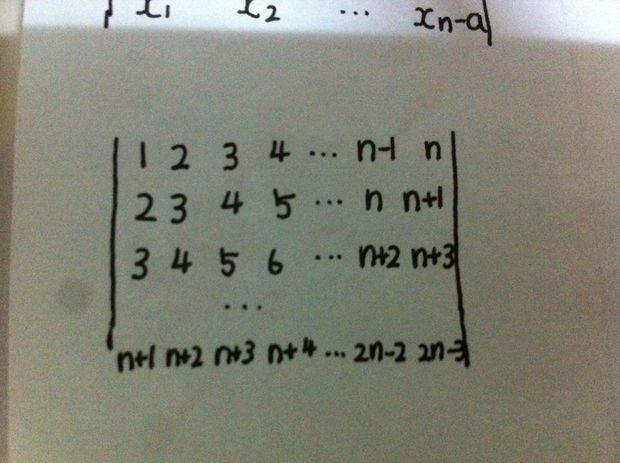 x1 x2 ... xn-a
1 2 3 4 ... n-1 n
2 3 4 5 ... n n+1
3 4 5 6 ... n+2 n+3
...
n+1 n+2 n+3 n+4 ... 2n-2 2n-3